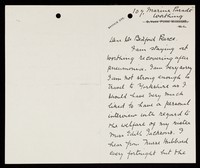 104 Marine Parade
Worthing
Dear Mr Bedford Pierce.
I am staying at
Worthing recovering after
pneumonia. I am very sorry
I am not strong enough to
travel to Yorkshire as I
should have very much
liked to have a personal
interview with regard to
the welfare of my sister
Miss Edith
hear from Miss
every fortnight but the